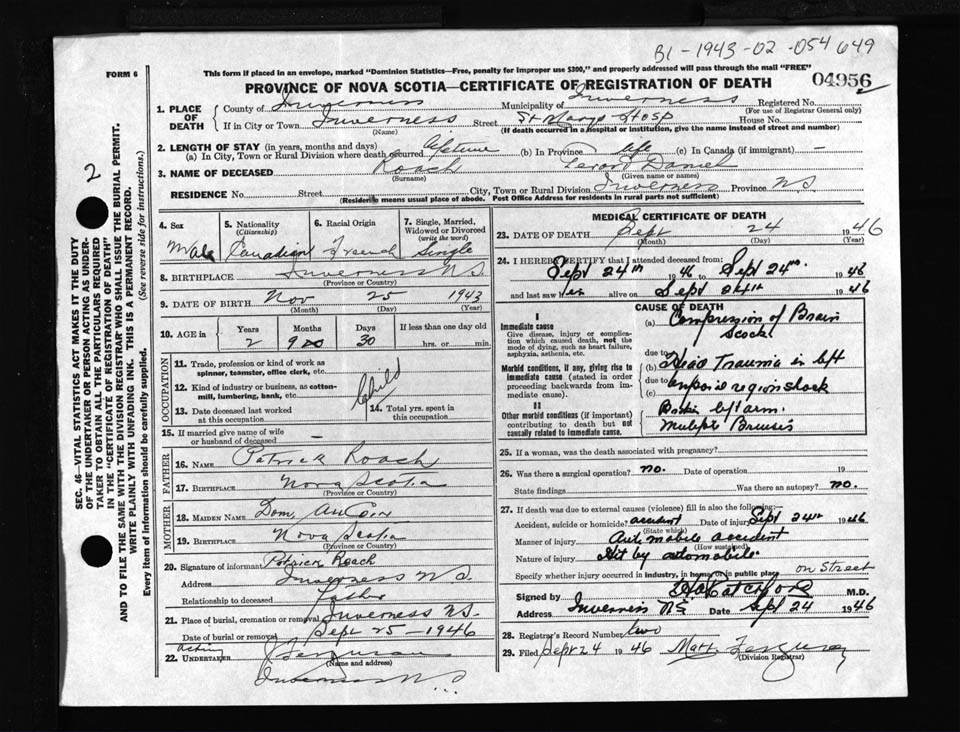 B1-1943-02-054649
FORM 6
This form if placed in an envelope, marked "Dominion Statistics—Free, penalty for improper use $300," and properly addressed will pass through the mail "FREE"
04956
2
PROVINCE OF NOVA SCOTIA—CERTIFICATE OF REGISTRATION OF DEATH
1. PLACE OF DEATH
County of Inverness Municipality of Inverness Registered No.
(For use of Registrar General only)
If in City or Town Inverness Street St Marys Hosp House No.
(Name) (If death occurred in a hospital or institution, give the name instead of street and number)
2. LENGTH OF STAY (in years, months and days)
(a) In City, Town or Rural Division where death occurred lifetime (b) In Province life (c) In Canada (if immigrant) —
3. NAME OF DECEASED Roach Daniel
(Surname) (Given name or names)
RESIDENCE No. Street City, Town or Rural Division Inverness Province N.S.
(Residence means usual place of abode. Post Office Address for residents in rural parts not sufficient)
4. Sex Male
5. Nationality (Citizenship) Canadian
6. Racial Origin French
7. Single, Married, Widowed or Divorced (write the word) Single
8. BIRTHPLACE Inverness N.S.
(Province or Country)
9. DATE OF BIRTH Nov 25 1943
(Month) (Day) (Year)
10. AGE in Years Months Days If less than one day old
2 9 30 hrs. or min.
OCCUPATION
11. Trade, profession or kind of work as spinner, teamster, office clerk, etc.
12. Kind of industry or business, as cotton-mill, lumbering, bank, etc.
Child
13. Date deceased last worked at this occupation
14. Total yrs. spent in this occupation
15. If married give name of wife or husband of deceased —
FATHER
16. NAME Patrick Roach
17. BIRTHPLACE Nova Scotia
(Province or Country)
MOTHER
18. MAIDEN NAME AuCoin
19. BIRTHPLACE Nova Scotia
(Province or Country)
20. Signature of informant Patrick Roach
Address Inverness N.S.
Relationship to deceased Father
21. Place of burial, cremation or removal Inverness N.S.
Date of burial or removal Sept 25-1946
acting
22. UNDERTAKER Ferguson
(Name and address)
Inverness N S
MEDICAL CERTIFICATE OF DEATH
23. DATE OF DEATH Sept 24 1946
(Month) (Day) (Year)
24. I HEREBY CERTIFY that I attended deceased from:
Sept 24th 1946 to Sept 24th 1946
and last saw him alive on Sept 24th 1946
CAUSE OF DEATH
I
Immediate cause
Give disease, injury or complication which caused death, not the mode of dying, such as heart failure, asphyxia, asthenia, etc.
(a) Compression of Brain
Shock
due to
Morbid conditions, if any, giving rise to immediate cause (stated in order proceeding backwards from immediate cause).
(b) Head Trauma in left
due to
(c) temporal region shock
II
Other morbid conditions (if important) contributing to death but not causally related to immediate cause.
Broken left arm.
Multiple Bruises
25. If a woman, was the death associated with pregnancy?
26. Was there a surgical operation? no. Date of operation 19
State findings Was there an autopsy? no.
27. If death was due to external causes (violence) fill in also the following:
Accident, suicide or homicide? accident Date of injury Sept 24th 1946
(State which)
Manner of injury Automobile accident
(How sustained)
Nature of injury Hit by automobile.
Specify whether injury occurred in industry, in home, or in public place on Street
Signed by M.D.
Address Inverness N.S. Date Sept 24 1946
28. Registrar's Record Number two
29. Filed Sept 24 1946 Matt. Ferguson
(Division Registrar)
2
SEC. 46—VITAL STATISTICS ACT MAKES IT THE DUTY
OF THE UNDERTAKER OR PERSON ACTING AS UNDER-
TAKER TO OBTAIN ALL THE PARTICULARS REQUIRED
IN THE "CERTIFICATE OF REGISTRATION OF DEATH"
AND TO FILE THE SAME WITH THE DIVISION REGISTRAR WHO SHALL ISSUE THE BURIAL PERMIT.
WRITE PLAINLY WITH UNFADING INK. THIS IS A PERMANENT RECORD.
Every item of information should be carefully supplied. (See reverse side for instructions.)